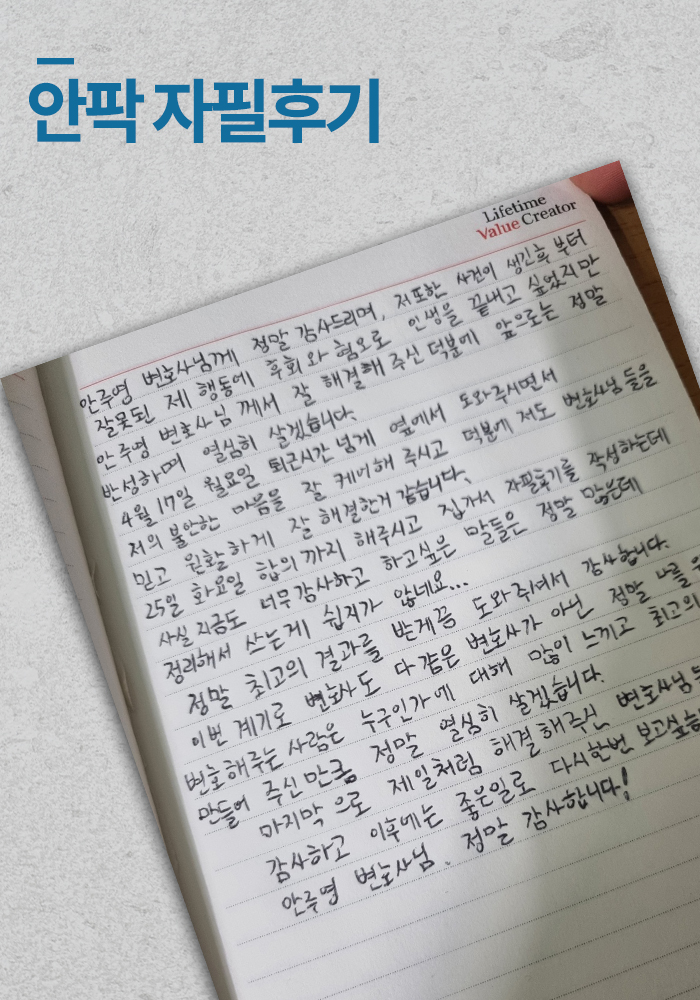 안팍 자필후기
Lifetime
Value Creator
안주영 변호사님께 정말 감사드리며, 저 또한 사건이 생긴후 부터
잘못된 제 행동에 후회와 혐오로 인생을 끝내고 싶었지만
안주영 변호사님 께서 잘 해결해 주신 덕분에 앞으로는 정말
반성하며 열심히 살겠습니다.
4월 17일 월요일 퇴근시간 넘게 옆에서 도와주시면서
저의 불안한 마음을 잘 케어해 주시고 덕분에 저도 변호사님들을
믿고 원활하게 잘 해결한거 같습니다.
25일 화요일 합의까지 해주시고 집가서 자필후기를 작성하는데
사실 지금도 너무 감사하고 하고싶은 말들은 정말 많은데
정리해서 쓰는게 쉽지가 않네요...
정말 최고의 결과를 받게끔 도와주셔서 감사합니다.
이번 계기로 변호사도 다 같은 변호사가 아닌 정말 나를
변호해주는 사람은 누구인가에 대해 많이 느끼고 최고의
만들어 주신만큼 정말 열심히 살겠습니다.
마지막으로 제일처럼 해결해주신 변호사님
감사하고 이후에는 좋은일로 다시한번
안주영 변호사님. 정말 감사합니다!